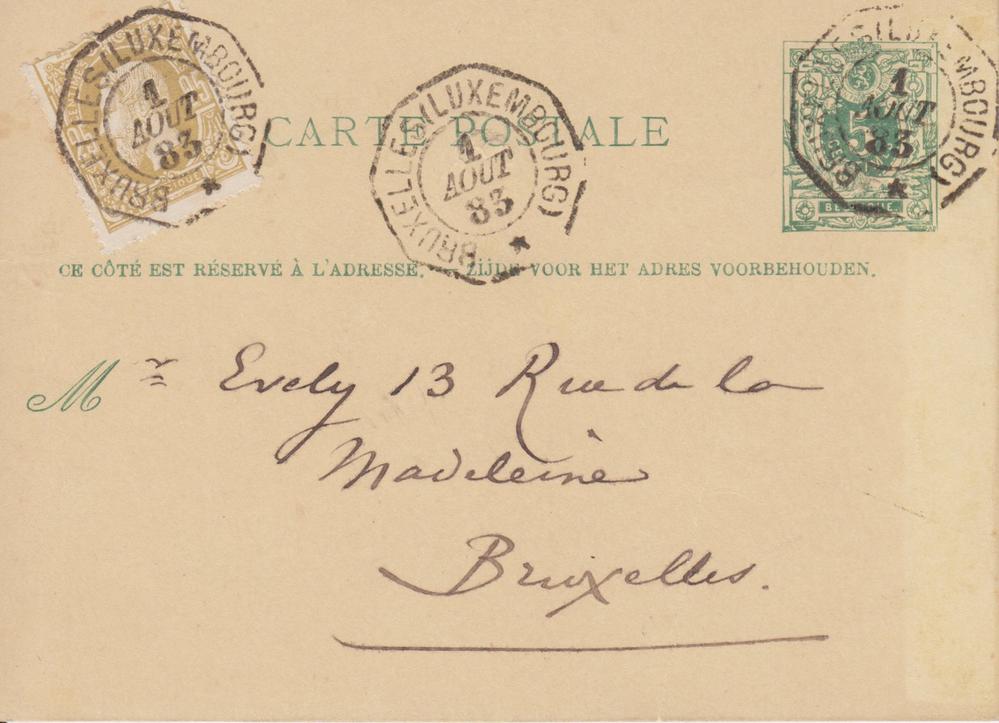 BRUXELLES (LUXEMBOURG)
1
AOUT
83
CARTE POSTALE
BRUXELLES (LUXEMBOURG)
1
AOUT
83
BRUXELLES (LUXEMBOURG)
1
AOUT
83
5
BELGIQUE
CE CÔTÉ EST RÉSERVÉ À L'ADRESSE. — ZIJDE VOOR HET ADRES VOORBEHOUDEN.
Mr Evely 13 Rue de la
Madeleine
Bruxelles.